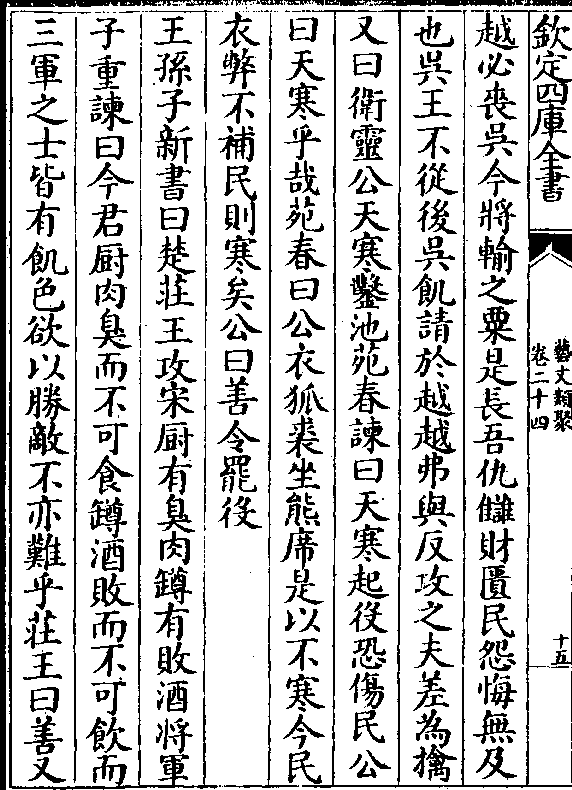 欽定四庫全書
藝文類聚
卷二十四
十五
越必喪吳今將輸之粟是長吾仇讎財匱民怨悔無及
也吳王不從後吳飢請於越越弗與反攻之夫差為擒
又曰衛靈公天寒鑿池苑春諫曰天寒起役恐傷民公
曰天寒乎哉苑春曰公衣狐裘坐熊席是以不寒今民
衣弊不補民則寒矣公曰善令罷役
王孫子新書曰楚莊王攻宋厨有臭肉罇有敗酒將軍
子重諫曰今君厨肉臭而不可食罇酒敗而不可飲而
三軍之士皆有飢色欲以勝敵不亦難乎莊王曰善又